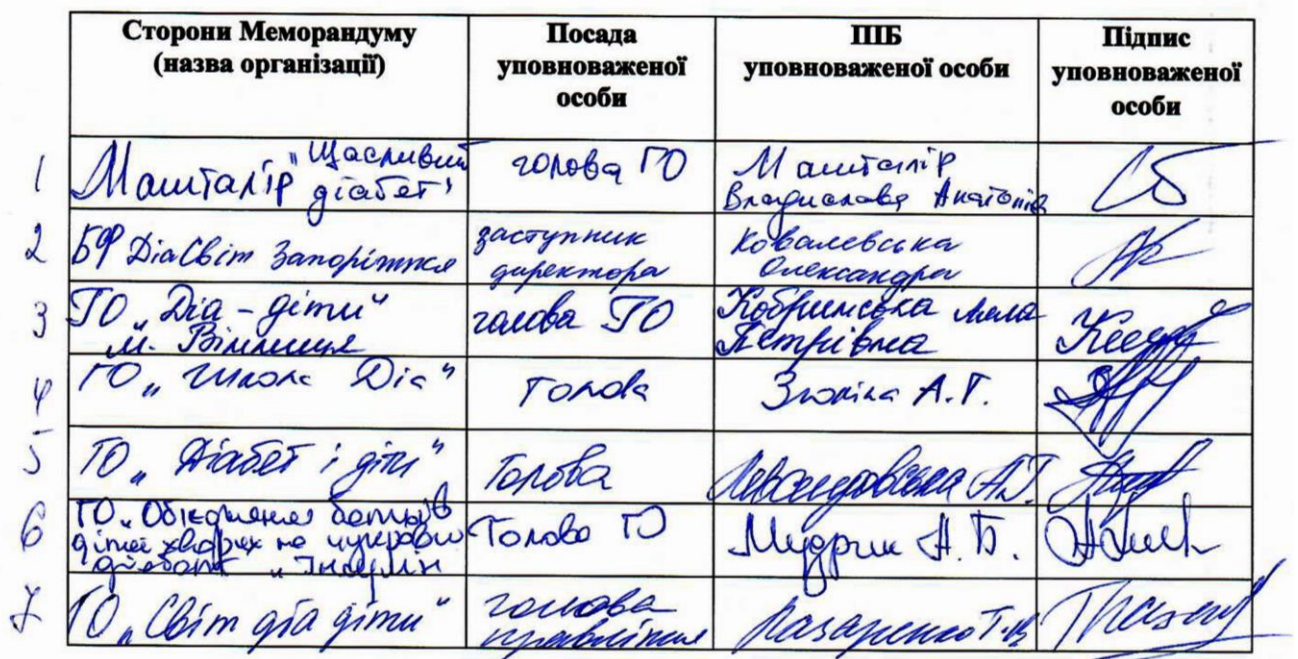 Сторони Меморандуму
(назва організації)
Посада
уповноваженої
особи
ПІБ
уповноваженої особи
Підпис
уповноваженої
особи
1
Машталір "Щасливий
діабет"
голова ГО
Машталір
Владислава Анатоліїв
2
БФ ДіаСвіт Запоріжжя
заступник
директора
Ковалевська
Олександра
3
ГО „Діа - діти“
м. Вінниця
голова ГО
Кобринська
Петрівна
4
ГО „Школа Діа“
Голова
А.Г.
5
ГО „Діабет і діти“
Голова
Левандовська А.Г.
6
ГО „Обієднання батьків
дітей хворих на цукровий
діабет „Інсулін
Голова ГО
Мудрик Н. Б.
7
ГО „Світ діа діти“
голова
правління
Назаренко Т.В